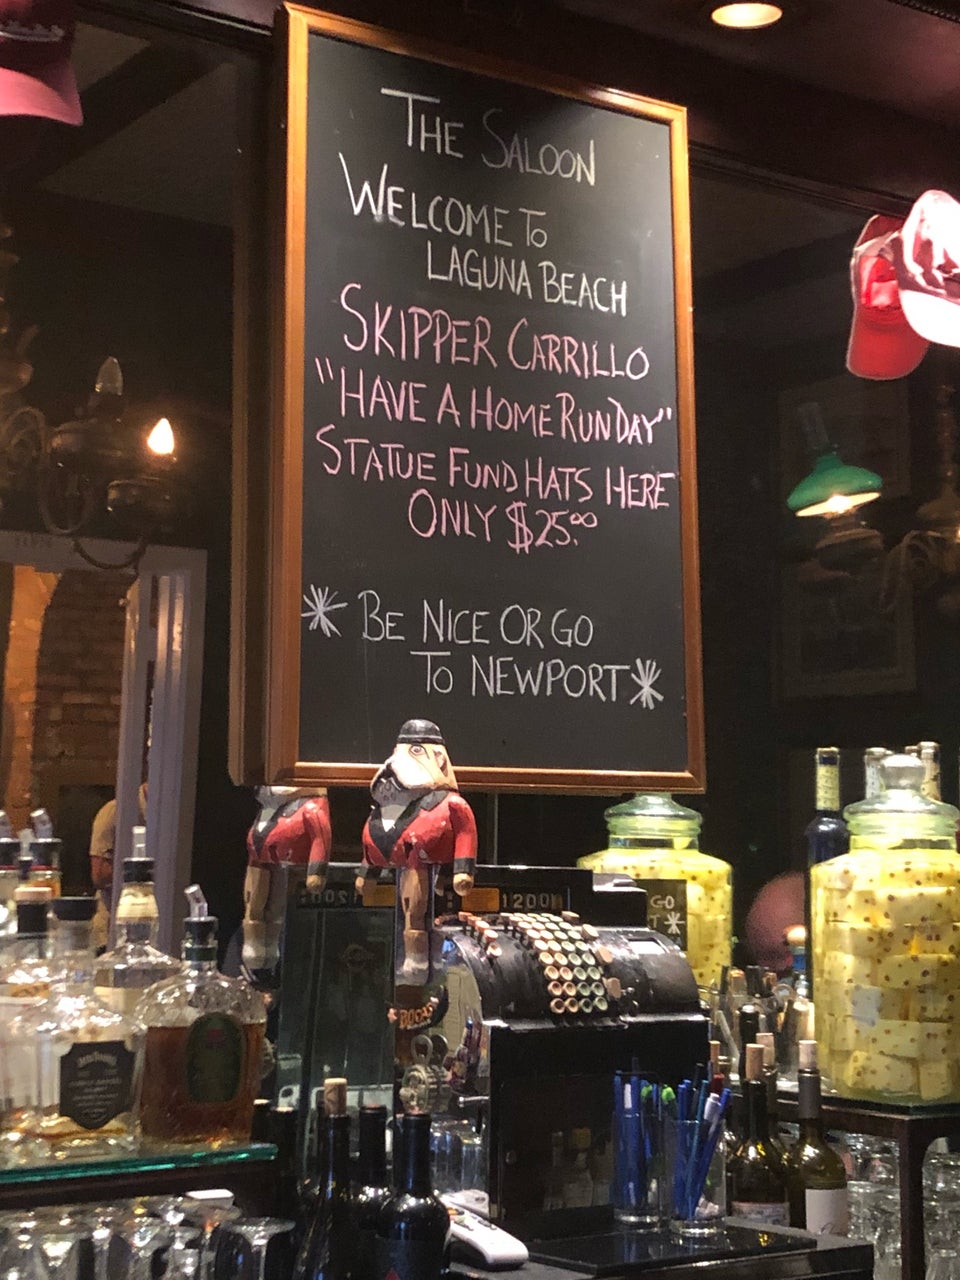 THE SALOON
WELCOME TO
LAGUNA BEACH
SKIPPER CARRILLO
"HAVE A HOME RUN DAY"
STATUE FUND HATS HERE
ONLY $25.00
* BE NICE OR GO
TO NEWPORT *
1200
GO